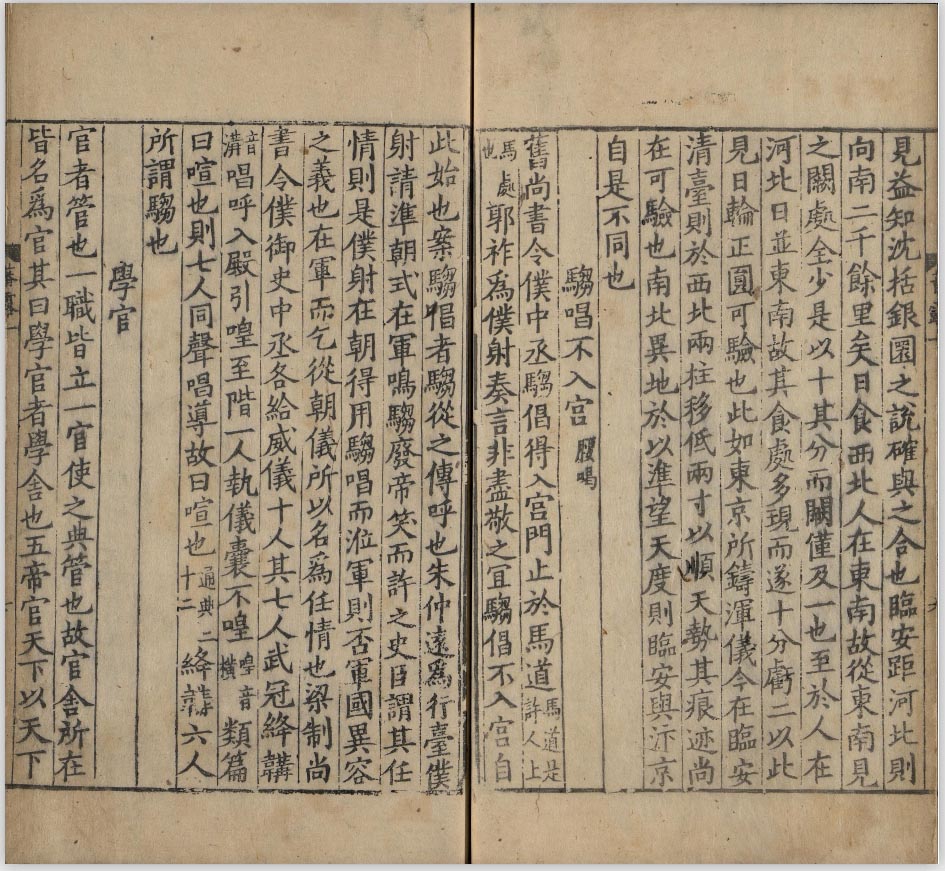 見益知沈括銀圜之説確與之合也臨安距河北則
向南二千餘里矣日食西北人在東南故從東南見
之闕處全少是以十其分而闕僅及一也至於人在
河北日並東南故其食處多現而遂十分虧二以此
見日輪正圓可驗也此如東京所鑄渾儀今在臨安
清臺則於西北兩柱移低兩寸以順天勢其痕迹尚
在可驗也南北異地於以準望天度則臨安與汴京
自是不同也
騶唱不入宫
舊尚書令僕中丞騶倡得入宫門止於馬道馬道是許人上
馬處也郭祚爲僕射奏言非盡敬之宜騶倡不入宫自
此始也案騶唱者騶從之傳呼也朱仲遠爲行臺僕
射請準朝式在軍鳴騶廢帝笑而許之史臣謂其任
情則是僕射在朝得用騶唱而涖軍則否軍國異容
之義也在軍而乞從朝儀所以名爲任情也梁制尚
書令僕御史中丞各給威儀十人其七人武冠絳韝
音溝唱呼入殿引喤至階一人執儀囊不喤喤音横類篇
曰喧也則七人同聲唱導故曰喧也通典二十二絳韝六人
所謂騶也
學官
官者管也一職皆立一官使之典管也故官舍所在
皆名爲官其曰學官者學舍也五帝官天下以天下